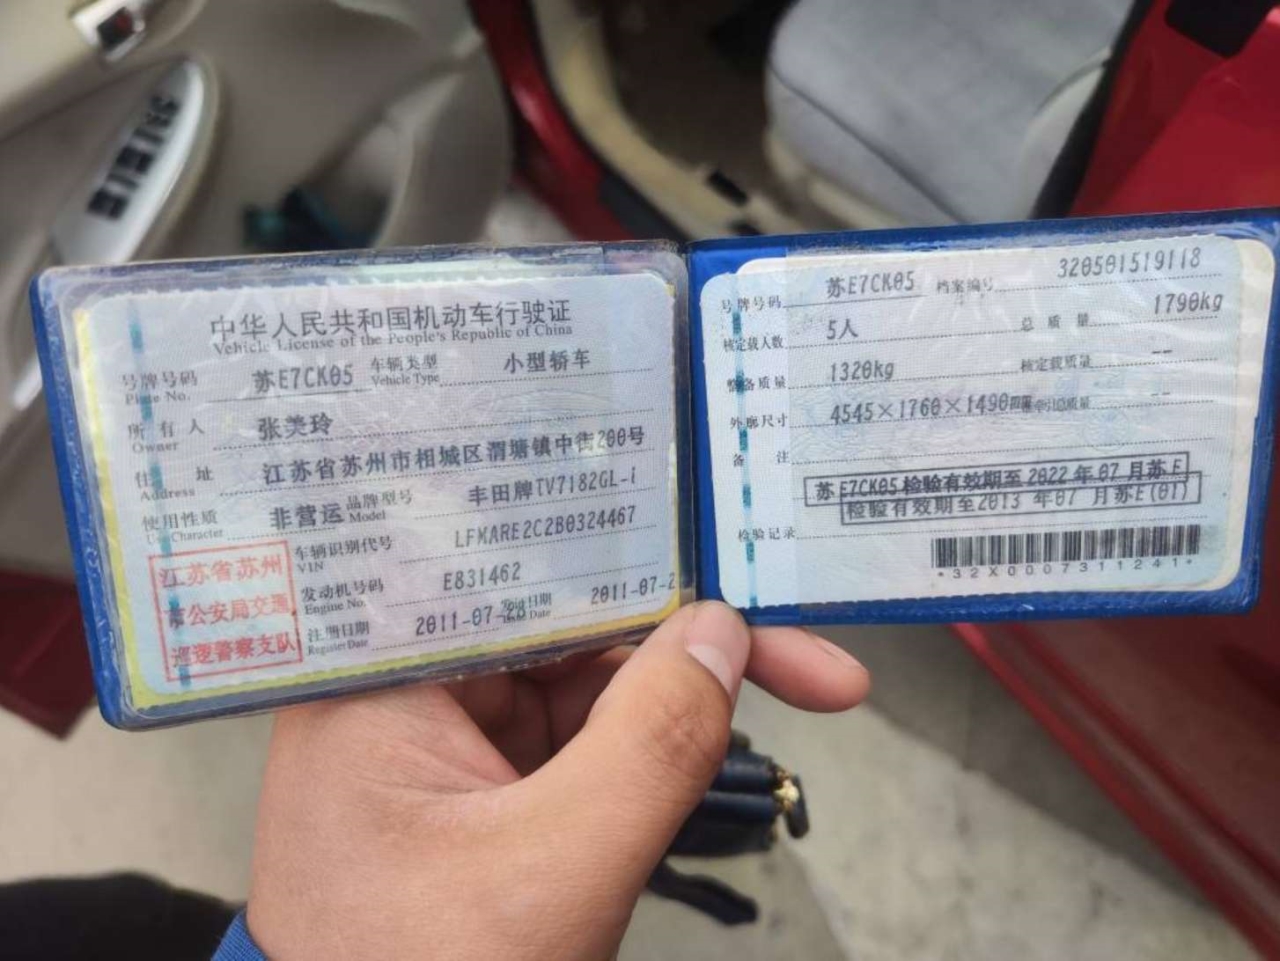 中华人民共和国机动车行驶证
Vehicle License of the People's Republic of China
号牌号码 苏E7CK05 车辆类型 小型轿车
Plate No. Vehicle Type
所有人 张美玲
Owner
住址 江苏省苏州市相城区渭塘镇中街200号
Address
使用性质 非营运 品牌型号 丰田牌TV7182GL-i
Use Character Model
车辆识别代号 LFMARE2C2B0324467
VIN
发动机号码 E831462
Engine No.
注册日期 2011-07-28 发证日期 2011-07-2
Register Date Issue Date
江苏省苏州
市公安局交通
巡逻警察支队
号牌号码 苏E7CK05 档案编号 320501519118
核定载人数 5人 总质量 1790kg
整备质量 1320kg 核定载质量 --
外廓尺寸 4545×1760×1490 准牵引总质量 --
备注
苏E7CK05检验有效期至2022年07月苏E
检验有效期至2013年07月苏E(01)
检验记录
*32X0007311241*